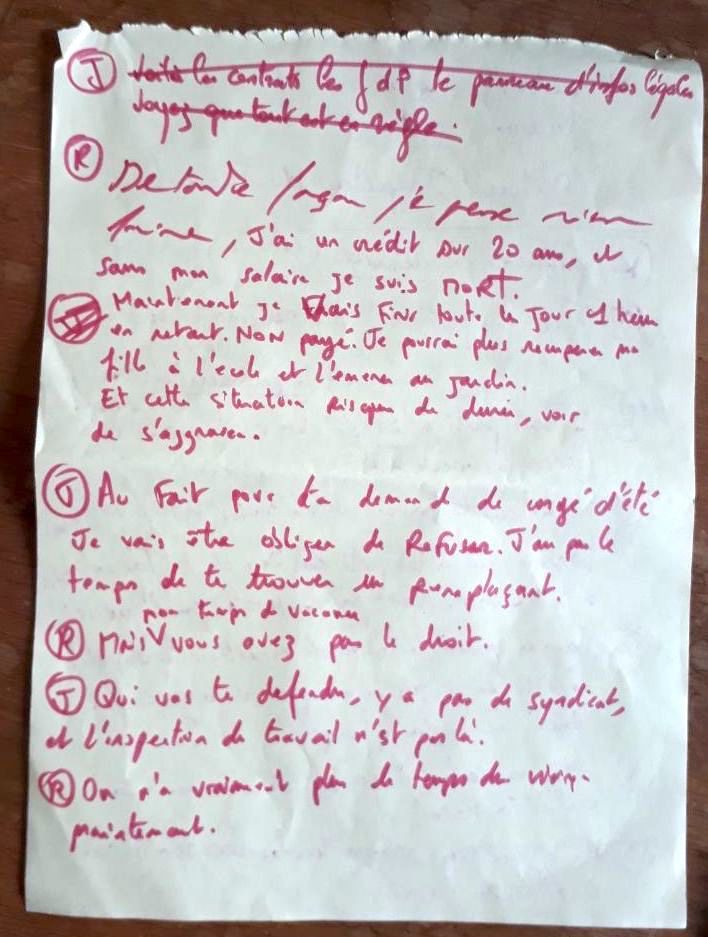 J Voilà les contrats les f d P le panneau d'infos légales
Voyez que tout est en règle.
R De toute façon je peux rien
faire, J'ai un crédit sur 20 ans, et
sans mon salaire je suis MORT.
Maintenant je vais Finir toute les Jour 1 heure
en retard. NON payé. Je pourrai plus recuperer ma
fille à l'ecole et l'emener au jardin.
Et cette situation Risque de durer, voir
de s'aggraver.
J Au Fait pour ta demande de congé d'été
Je vais être obliger de Refuser. J'ai pas le
temps de te trouver un Remplaçant.
mon temps de vacance
R MAIS vous avez pas le droit.
J Qui vas te defendre, y a pas de syndicat,
et l'inspection du travail n'est pas là.
R On n'a vraiment plus le temps de vivre
maintenant.